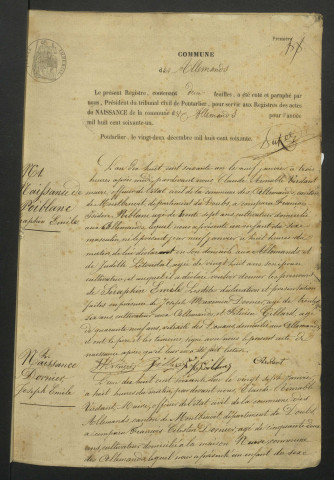 Premier
COMMUNE
des Allemands
Le présent Registre, contenant dix feuilles, a été coté et paraphé par
nous, Président du tribunal civil de Pontarlier, pour servir aux Registres des actes
de NAISSANCE de la commune des Allemands pour l'année
mil huit cent soixante-un.
Pontarlier, le vingt deux décembre mil huit cent soixante.
N° 1
Naissance de
Poiblanc
Séraphin Emile
L'an dix huit cent soixante un le neuf janvier à trois
heures après midi, pardevant nous Claude Aimable Verdant
maire, officier de l'état civil de la commune des Allemands, canton
de Montbenoit département du Doubs, a comparu François
Isidore Poiblanc âgé de trente sept ans cultivateur domicilié
aux Allemands, lequel nous a présenté un enfant du sexe
masculin, né le présent jour neuf janvier à huit heures du
matin, de lui déclarant en son domicile aux Allemands et
de Judith
cultivateur, et auquel il a déclaré vouloir donner les prénoms
de Séraphin Emile. Les dites déclaration et présentation
faites en présence de Joseph Maximin Dornier, âgé de
ans cultivateur aux Allemands, et Gillard, âgé
de quarante neuf ans, domiciliés aux Allemands
et ont le père et les témoins signé avec nous le présent acte de
naissance après qu'il leur en a été fait lecture.
Verdant
N° 2
Naissance
Dornier
Joseph Emile
L'an dix huit cent soixante un le vingt sept janvier
à huit heures du matin, pardevant nous Claude Aimable
Verdant, Maire, officier de l'état civil de la commune des
Allemands canton de Montbenoit, département du Doubs,
a comparu François Dornier, âgé de cinquante
ans, cultivateur domicilié à la maison Neuve commune
des Allemands, lequel nous a présenté un enfant du sexe